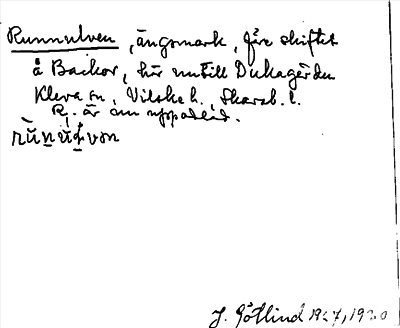 Runnulven, ängsmark, före skiftet
å Backor, hör nu till Dukagården
Kleva sn, Vilske h., Skarab. l.
R. är nu uppodlad.
J. Götlind 1927, 1920